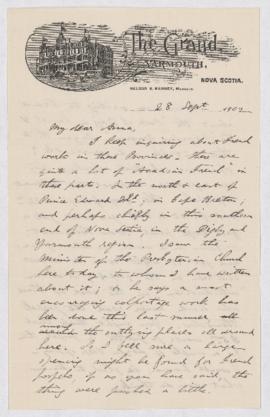 The Grand
YARMOUTH,
NOVA SCOTIA.
28 Sept. 1902
My dear Anna,
I keep inquiring about French
work in these Provinces. There are
quite a lot of Acadian French in
these parts. In the north & east of
Prince Edward Isl., in Cape Breton,
and perhaps chiefly in this southern
end of Nova Scotia, in the Digby and
Yarmouth region. I saw the
Minister of the Presbyterian Church
here today to whom I have written
about it; & he says a most
encouraging colportage work has
been done this last summer
the outlying places all around
here. So I feel sure a large
opening might be found for French
, if as you have said, the
thing were pushed a little.